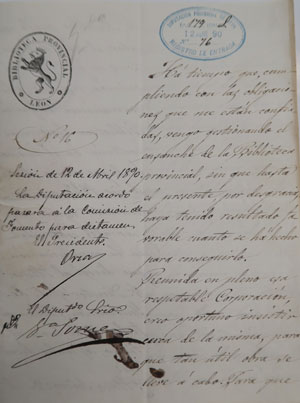 BIBLIOTECA PROVINCIAL
LEON
12 ABR 90
N.º 76
REGISTRO DE ENTRADA
Nº 16
Sesion de 12 de Abril 1890
La Diputación acordó
pasara á la comision de
Fomento para dictamen.
El Presidente,
Oria
El Diputado Srio
Há tiempo que, cum-
pliendo con las obligacio-
nes que me están confia-
das, vengo gestionando el
ensanche de la Biblioteca
provincial, sin que hasta
el presente, por desgracia,
haya tenido resultado fa-
vorable cuanto se ha hecho
para conseguirlo.
Reunida en pleno esa
respetable Corporación,
creo oportuno insistir
cerca de la misma, para
que tan útil obra se
lleve á cabo. Para que